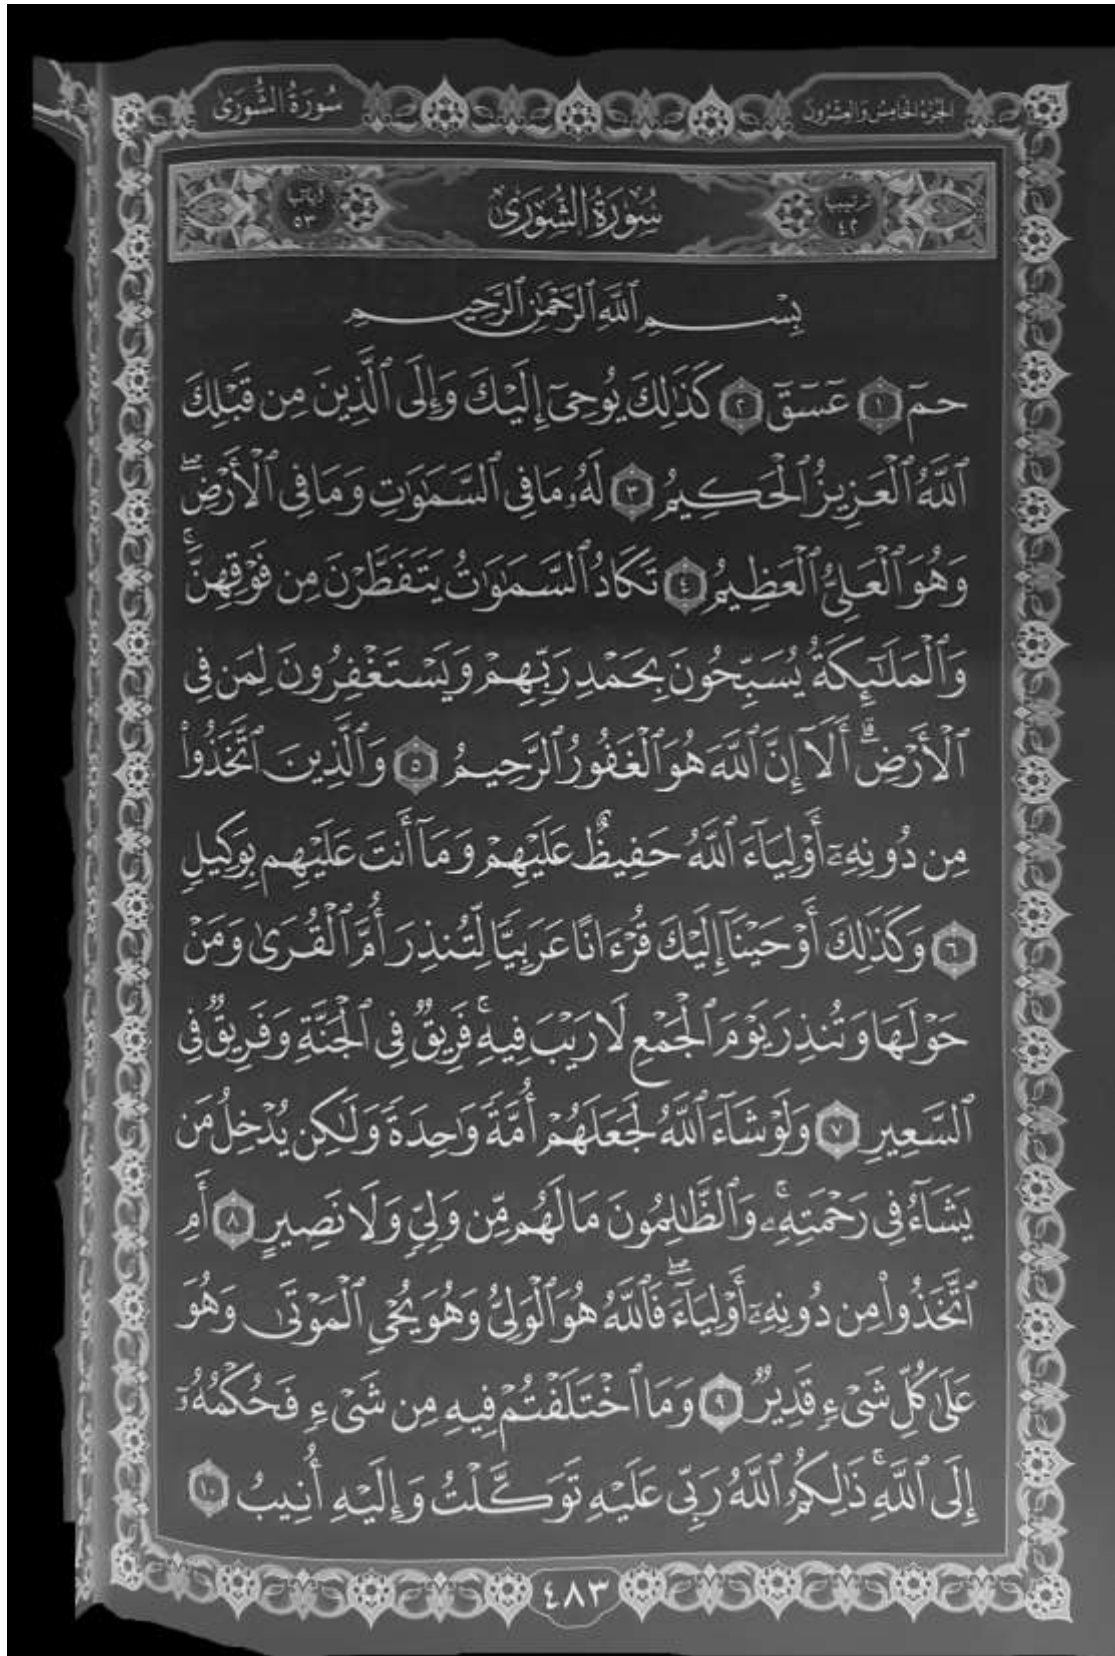 الجزء الخامس والعشرون
سُورَةُ الشُّورَىٰ
ترتيبها ٤٢
سُورَةُ الشُّورَىٰ
آياتها ٥٣
بِسْمِ ٱللَّهِ ٱلرَّحْمَٰنِ ٱلرَّحِيمِ
حمٓ ١ عٓسٓقٓ ٢ كَذَٰلِكَ يُوحِىٓ إِلَيْكَ وَإِلَى ٱلَّذِينَ مِن قَبْلِكَ
ٱللَّهُ ٱلْعَزِيزُ ٱلْحَكِيمُ ٣ لَهُۥ مَا فِى ٱلسَّمَٰوَٰتِ وَمَا فِى ٱلْأَرْضِۖ
وَهُوَ ٱلْعَلِىُّ ٱلْعَظِيمُ ٤ تَكَادُ ٱلسَّمَٰوَٰتُ يَتَفَطَّرْنَ مِن فَوْقِهِنَّۚ
وَٱلْمَلَٰٓئِكَةُ يُسَبِّحُونَ بِحَمْدِ رَبِّهِمْ وَيَسْتَغْفِرُونَ لِمَن فِى
ٱلْأَرْضِۗ أَلَآ إِنَّ ٱللَّهَ هُوَ ٱلْغَفُورُ ٱلرَّحِيمُ ٥ وَٱلَّذِينَ ٱتَّخَذُوا۟
مِن دُونِهِۦٓ أَوْلِيَآءَ ٱللَّهُ حَفِيظٌ عَلَيْهِمْ وَمَآ أَنتَ عَلَيْهِم بِوَكِيلٍ
٦ وَكَذَٰلِكَ أَوْحَيْنَآ إِلَيْكَ قُرْءَانًا عَرَبِيًّا لِّتُنذِرَ أُمَّ ٱلْقُرَىٰ وَمَنْ
حَوْلَهَا وَتُنذِرَ يَوْمَ ٱلْجَمْعِ لَا رَيْبَ فِيهِۚ فَرِيقٌ فِى ٱلْجَنَّةِ وَفَرِيقٌ فِى
ٱلسَّعِيرِ ٧ وَلَوْ شَآءَ ٱللَّهُ لَجَعَلَهُمْ أُمَّةً وَٰحِدَةً وَلَٰكِن يُدْخِلُ مَن
يَشَآءُ فِى رَحْمَتِهِۦۚ وَٱلظَّٰلِمُونَ مَا لَهُم مِّن وَلِىٍّ وَلَا نَصِيرٍ ٨ أَمِ
ٱتَّخَذُوا۟ مِن دُونِهِۦٓ أَوْلِيَآءَۖ فَٱللَّهُ هُوَ ٱلْوَلِىُّ وَهُوَ يُحْىِ ٱلْمَوْتَىٰ وَهُوَ
عَلَىٰ كُلِّ شَىْءٍ قَدِيرٌ ٩ وَمَا ٱخْتَلَفْتُمْ فِيهِ مِن شَىْءٍ فَحُكْمُهُۥٓ
إِلَى ٱللَّهِۚ ذَٰلِكُمُ ٱللَّهُ رَبِّى عَلَيْهِ تَوَكَّلْتُ وَإِلَيْهِ أُنِيبُ ١٠
٤٨٣